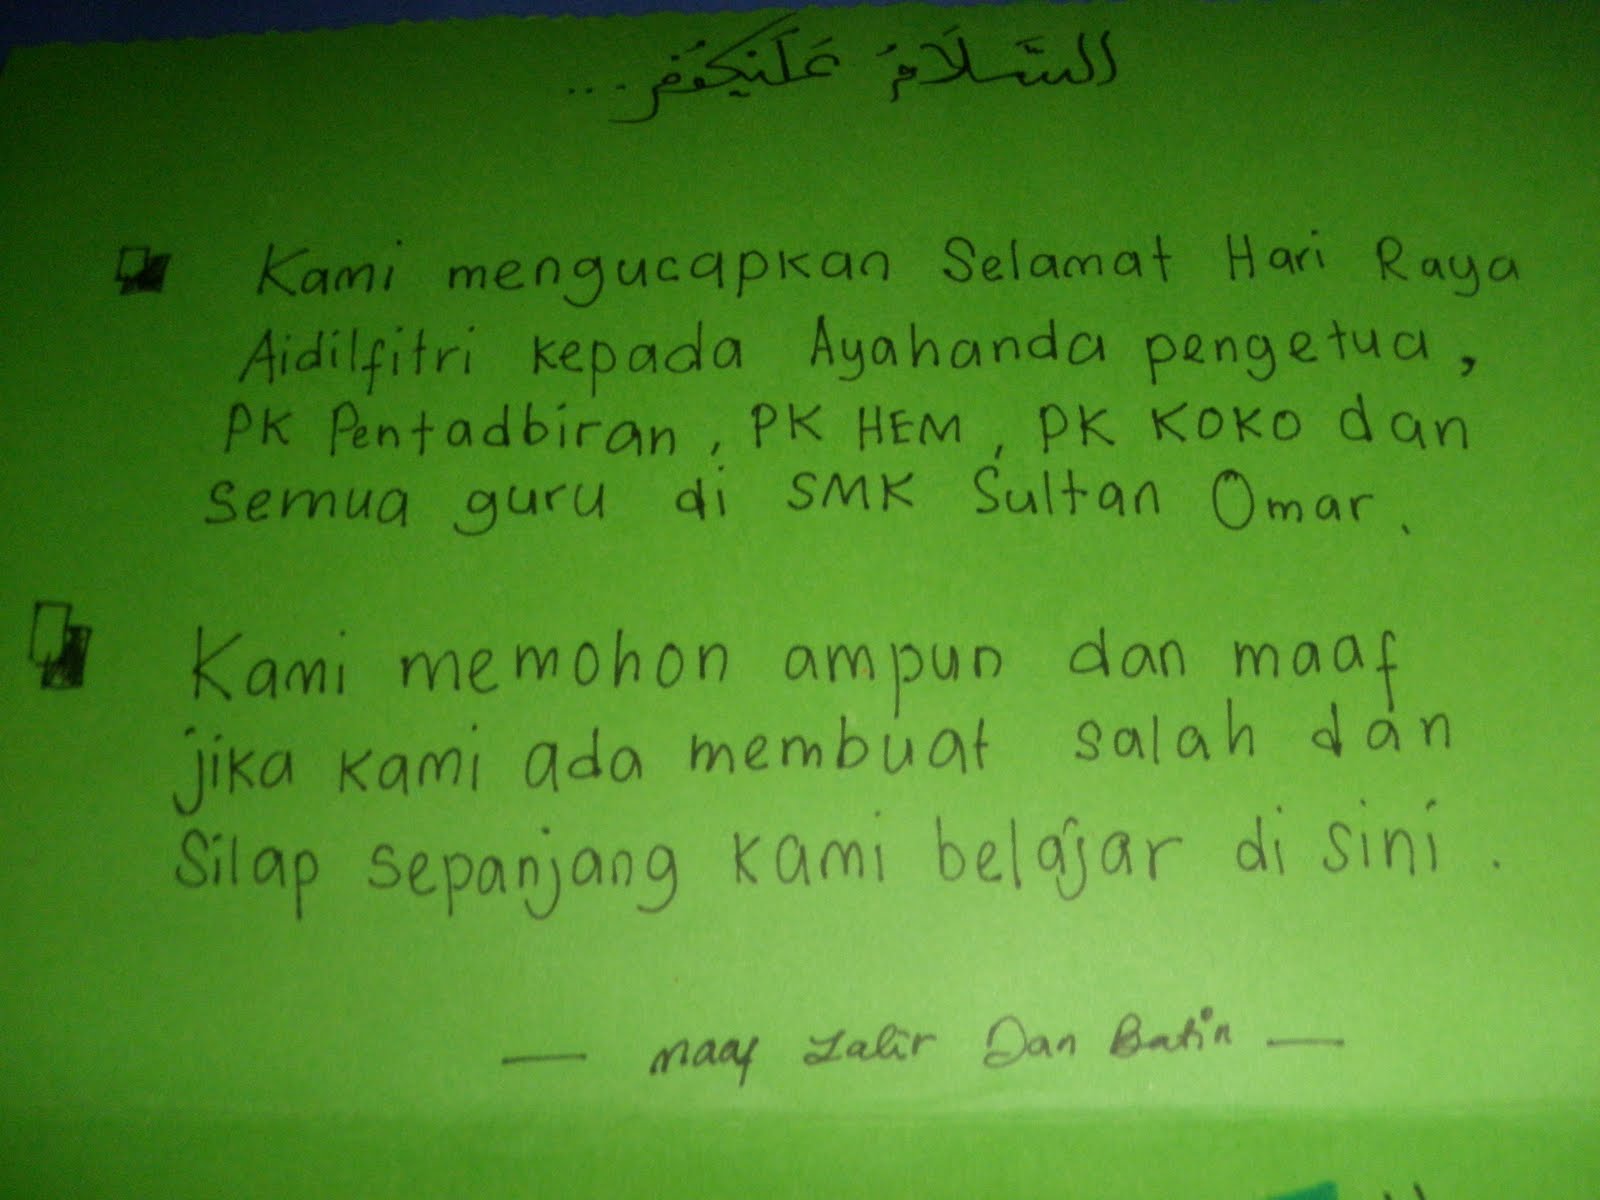 السَّلَامُ عَلَيْكُمْ...
Kami mengucapkan Selamat Hari Raya
Aidilfitri kepada Ayahanda pengetua,
PK Pentadbiran, PK HEM, PK KOKO dan
semua guru di SMK Sultan Omar.
Kami memohon ampun dan maaf
jika kami ada membuat salah dan
silap sepanjang kami belajar di sini.
— Maaf Zahir Dan Batin —